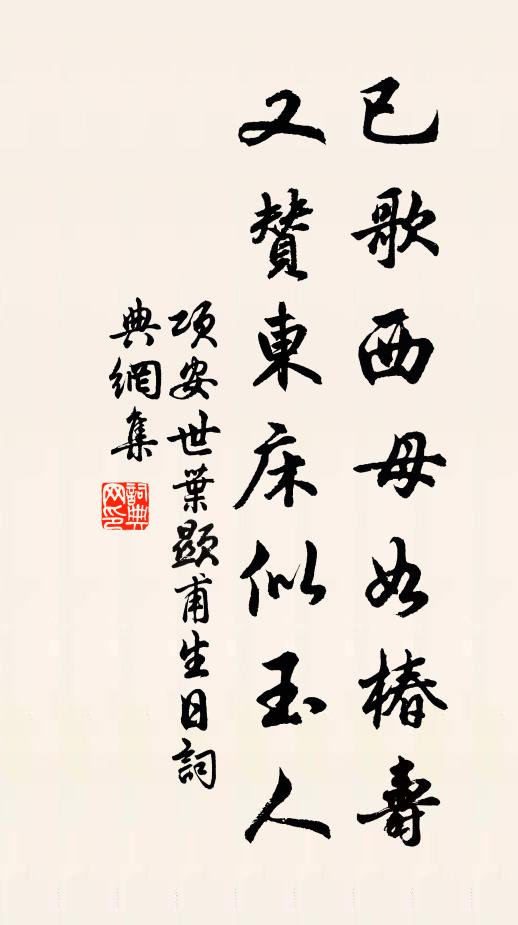 已歌西母如椿壽
又贊東床似玉人
項安世葉顯甫生日詞
典網集
詞典
网印